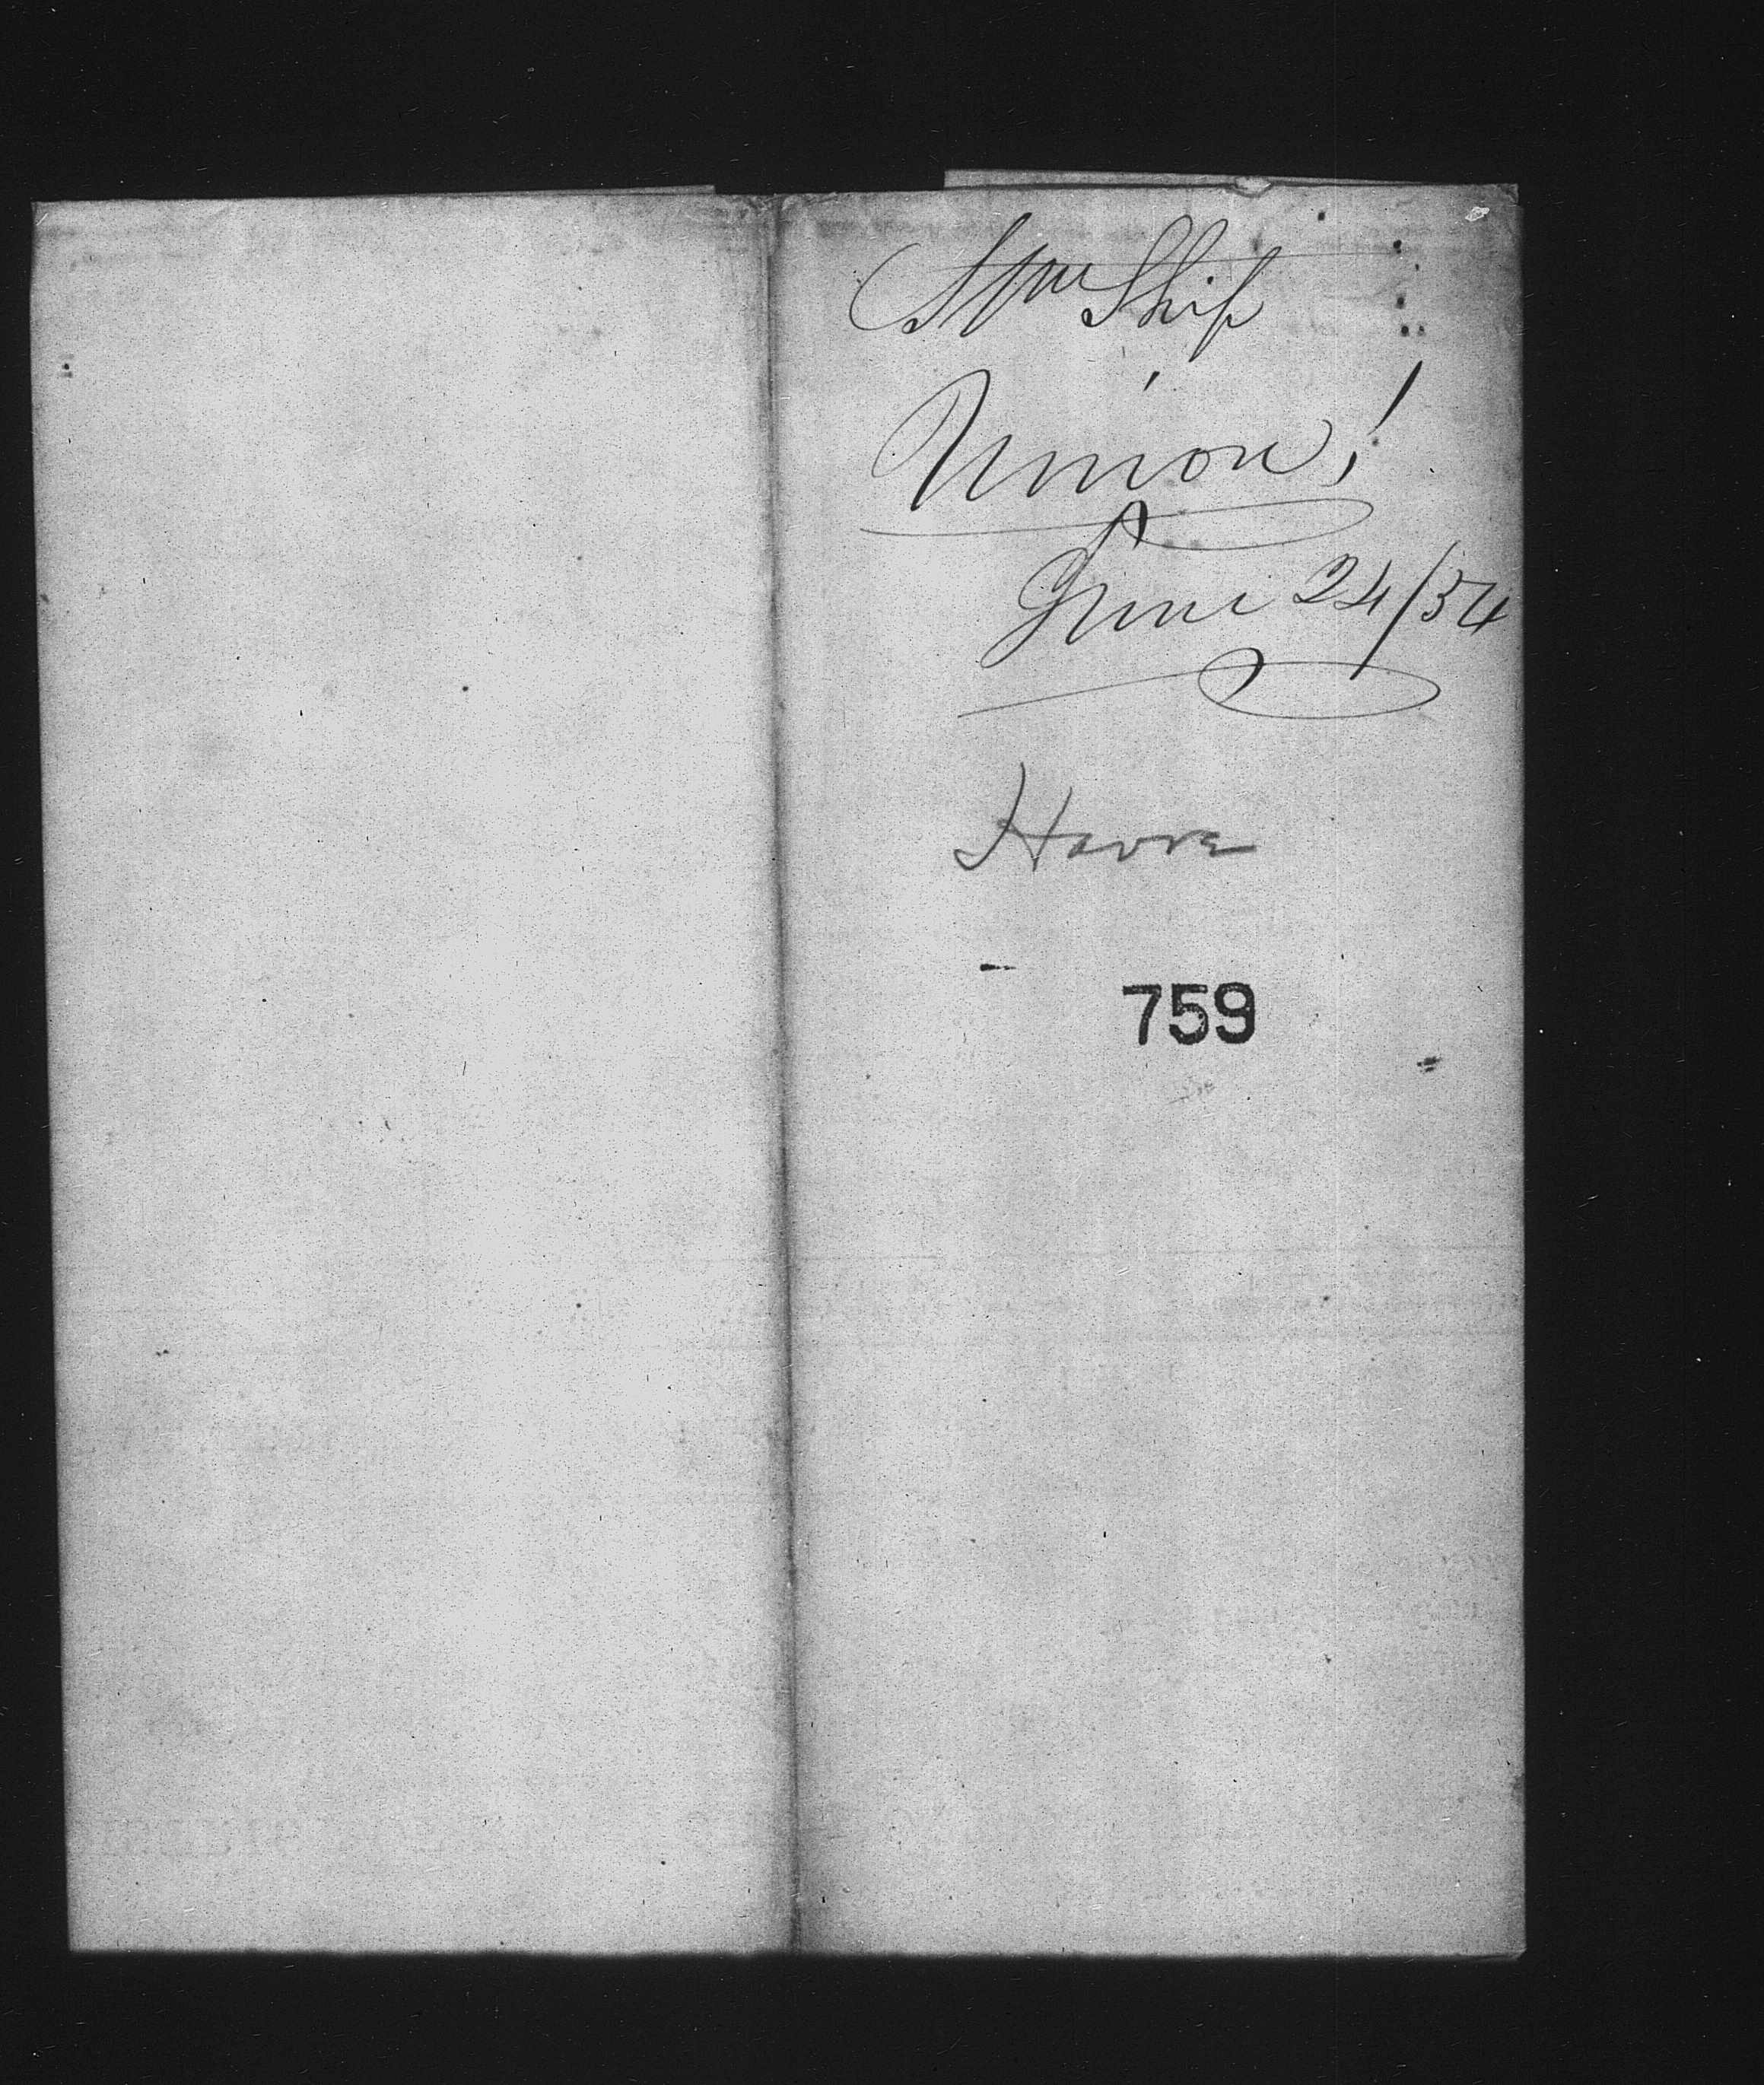 Stm Ship
Union!
June 24/54
Havre
759